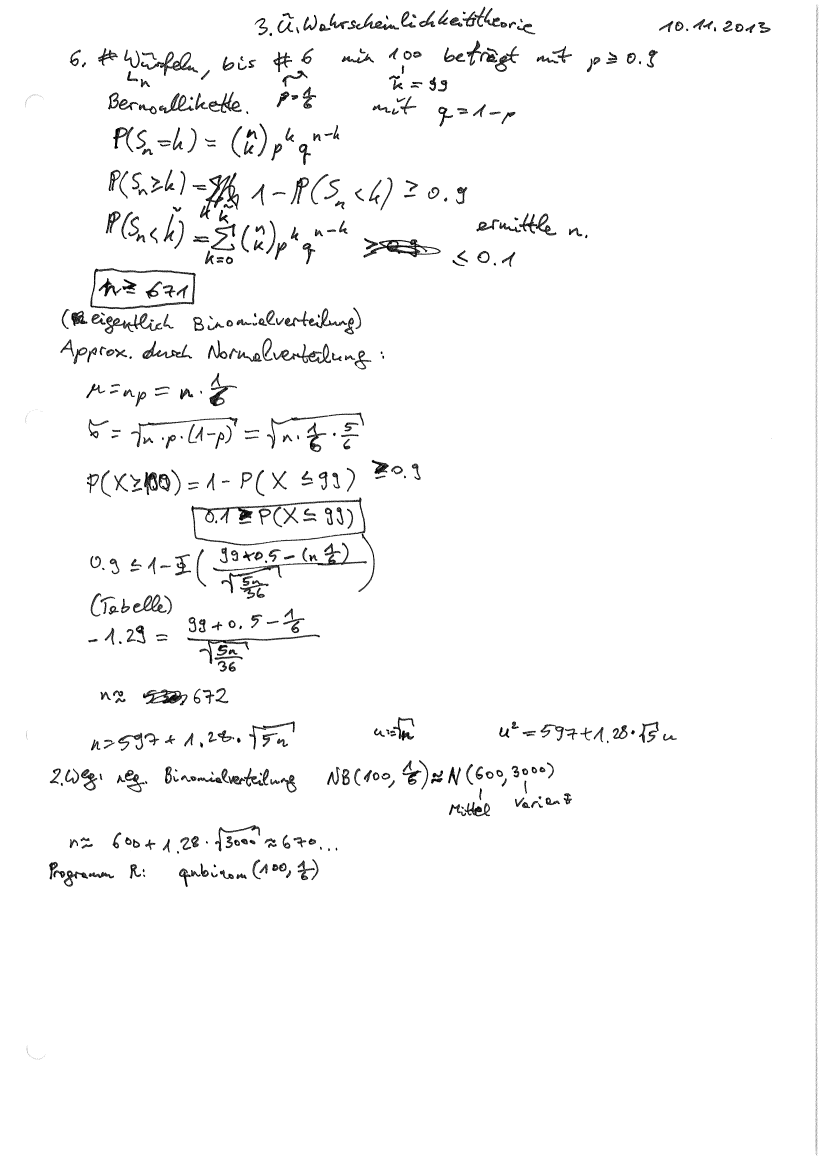 3. Ü. Wahrscheinlichkeitstheorie 10.11.2013
6. # Würfeln, bis # 6 min 100 beträgt mit p ≥ 0.9
↳n p=1/6 k̃ = 99
Bernoullikette. mit q = 1-p
P(Sₙ=k) = (n k) p^k q^(n-k)
P(Sₙ≥k) = 1 - P(Sₙ<k) ≥ 0.9
P(Sₙ<k̃) = Σ_{k=0}^{k̃} (n k) p^k q^(n-k) ≤ 0.1 ermittle n.
n ≥ 671
(eigentlich Binomialverteilung)
Approx. durch Normalverteilung:
μ = np = n · 1/6
σ = √(n·p·(1-p)) = √(n · 1/6 · 5/6)
P(X≥100) = 1 - P(X ≤ 99) ≥ 0.9
0.1 ≥ P(X ≤ 99)
0.9 ≤ 1 - Φ( (99+0.5-(n 1/6)) / √(5n/36) )
(Tabelle)
-1.29 = (99+0.5-1/6) / √(5n/36)
n ≈ 672
n > 597 + 1.28 · √(5n) u=√n u² = 597+1.28·√5 u
2. Weg: neg. Binomialverteilung NB(100, 1/6) ≈ N(600, 3000)
Mittel Varianz
n ≈ 600 + 1.28 · √3000 ≈ 670...
Programm R: qnbinom(100, 1/6)